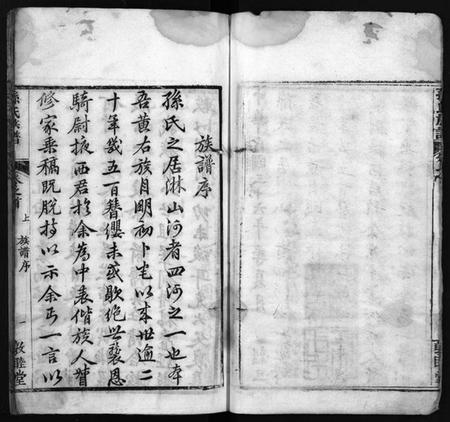 族譜序
孫氏之居淋山河者四河之一也本
吾黃右族自明初卜宅以來世逾二
十年幾五百簪纓未或歇絕世襲恩
騎尉掖西君於余為中表偕族人
修家乘稿既脫持以示余丐一言以
孫氏族譜
卷之首
上
族譜序
一
敦睦堂